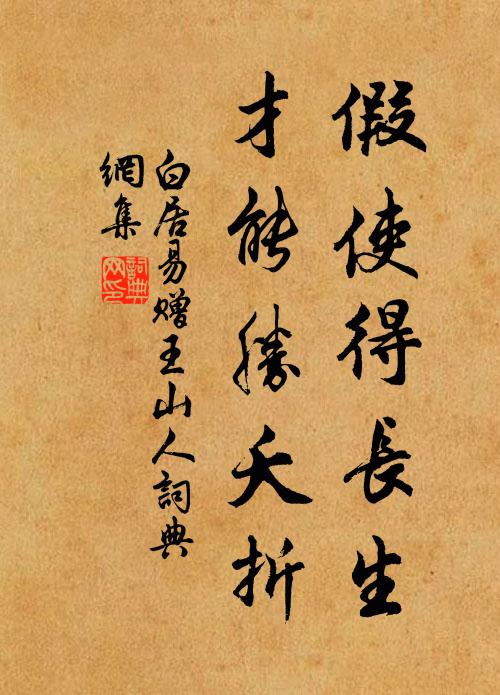 假使得長生
才能勝夭折
白居易贈王山人詞典
網集
詞典
网印